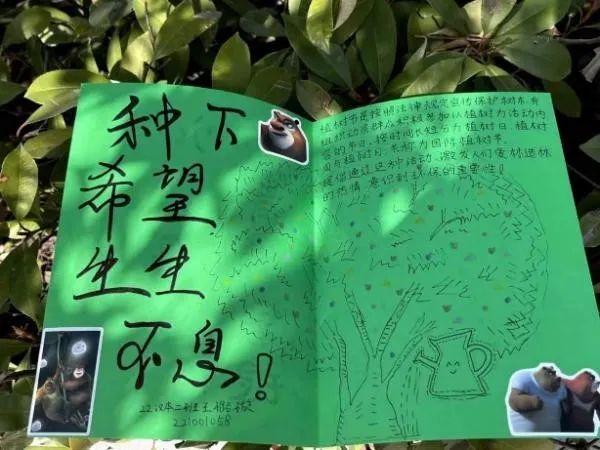 种下
希望
生生
不息!
22汉本二班王
221001058
植树节是按照法律规定宣传保护树木,并
组织动员群众积极参加以植树为活动内
容的节日。按时间长短可分为植树日、植树
周和植树月,总称为国际植树节。
提倡通过这种活动,激发人们爱林造林
的热情,意识到环保的重要性!